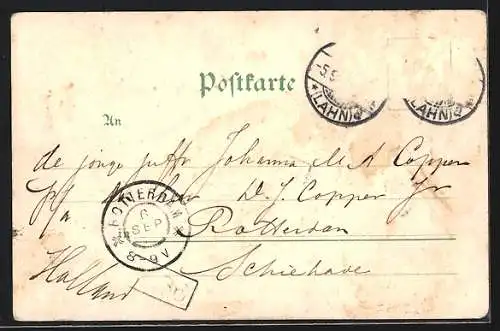 Postkarte
-5.9
*(LAHN)
(LAHN)
An
de jonge juffr Johanna M A Copper
p/a D. J. Copper Jr
ROTTERDAM
6
SEP
8-9V
Rotterdam
Schiekade
Holland